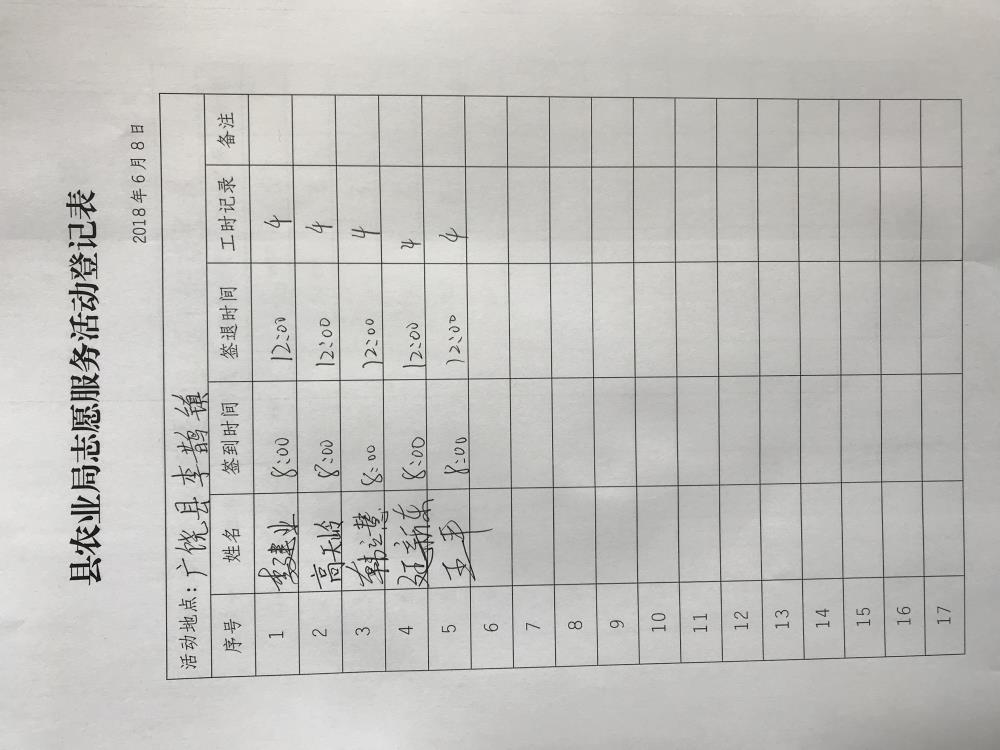 县农业局志愿服务活动登记表
2018年6月8日
活动地点：广饶县李鹊镇
序号 姓名 签到时间 签退时间 工时记录 备注
1 李建业 8:00 12:00 4
2 高天岭 8:00 12:00 4
3 韩立慧 8:00 12:00 4
4 延新东 8:00 12:00 4
5 8:00 12:00 4
6
7
8
9
10
11
12
13
14
15
16
17